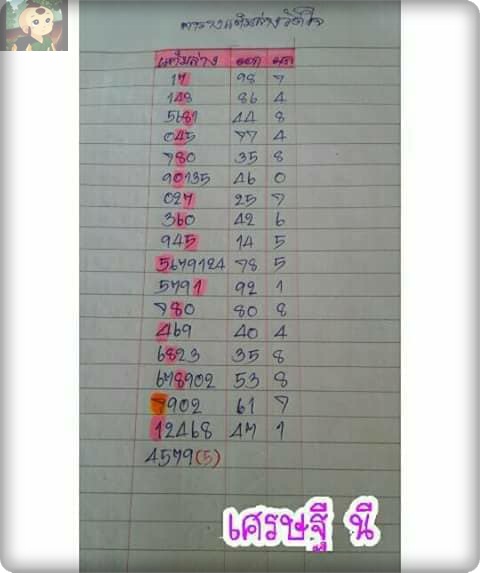 ตารางแต้มล่างวัดใจ
แต้มล่าง ออก ผล
17 98 7
148 86 4
5681 44 8
045 77 4
780 35 8
90135 46 0
027 25 7
360 42 6
945 14 5
5679124 78 5
5791 92 1
780 80 8
469 40 4
6823 35 8
678902 53 8
7902 61 7
12468 47 1
4579(5)
เศรษฐี นี